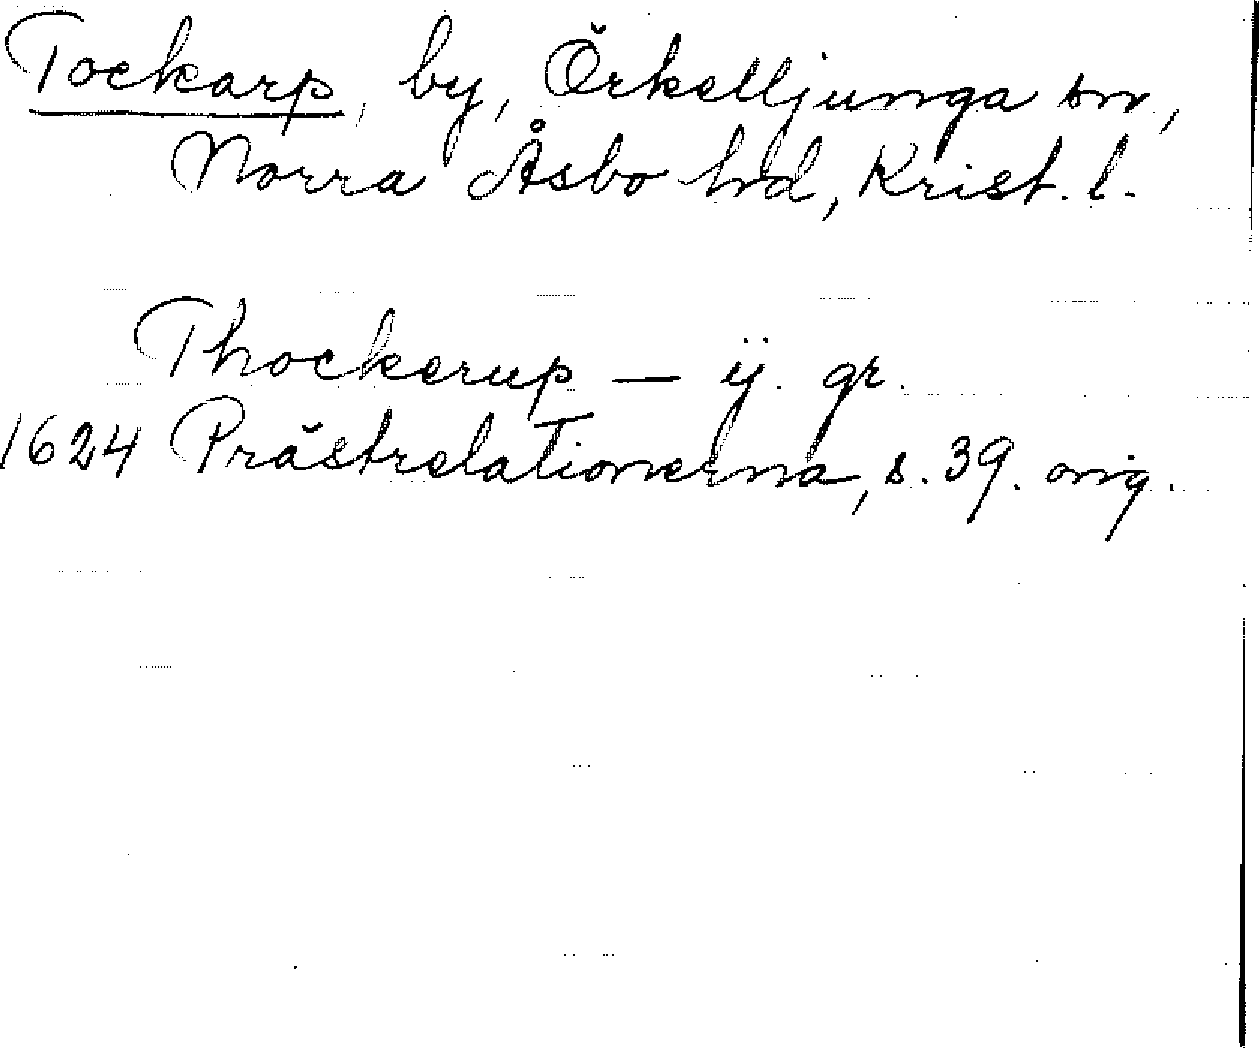 Tockarp, by, Örkelljunga sn,
Norra Åsbo hd, Krist. l.
Thockerup — ÿ. gr.
1624 Prästrelationerna, s. 39. orig.